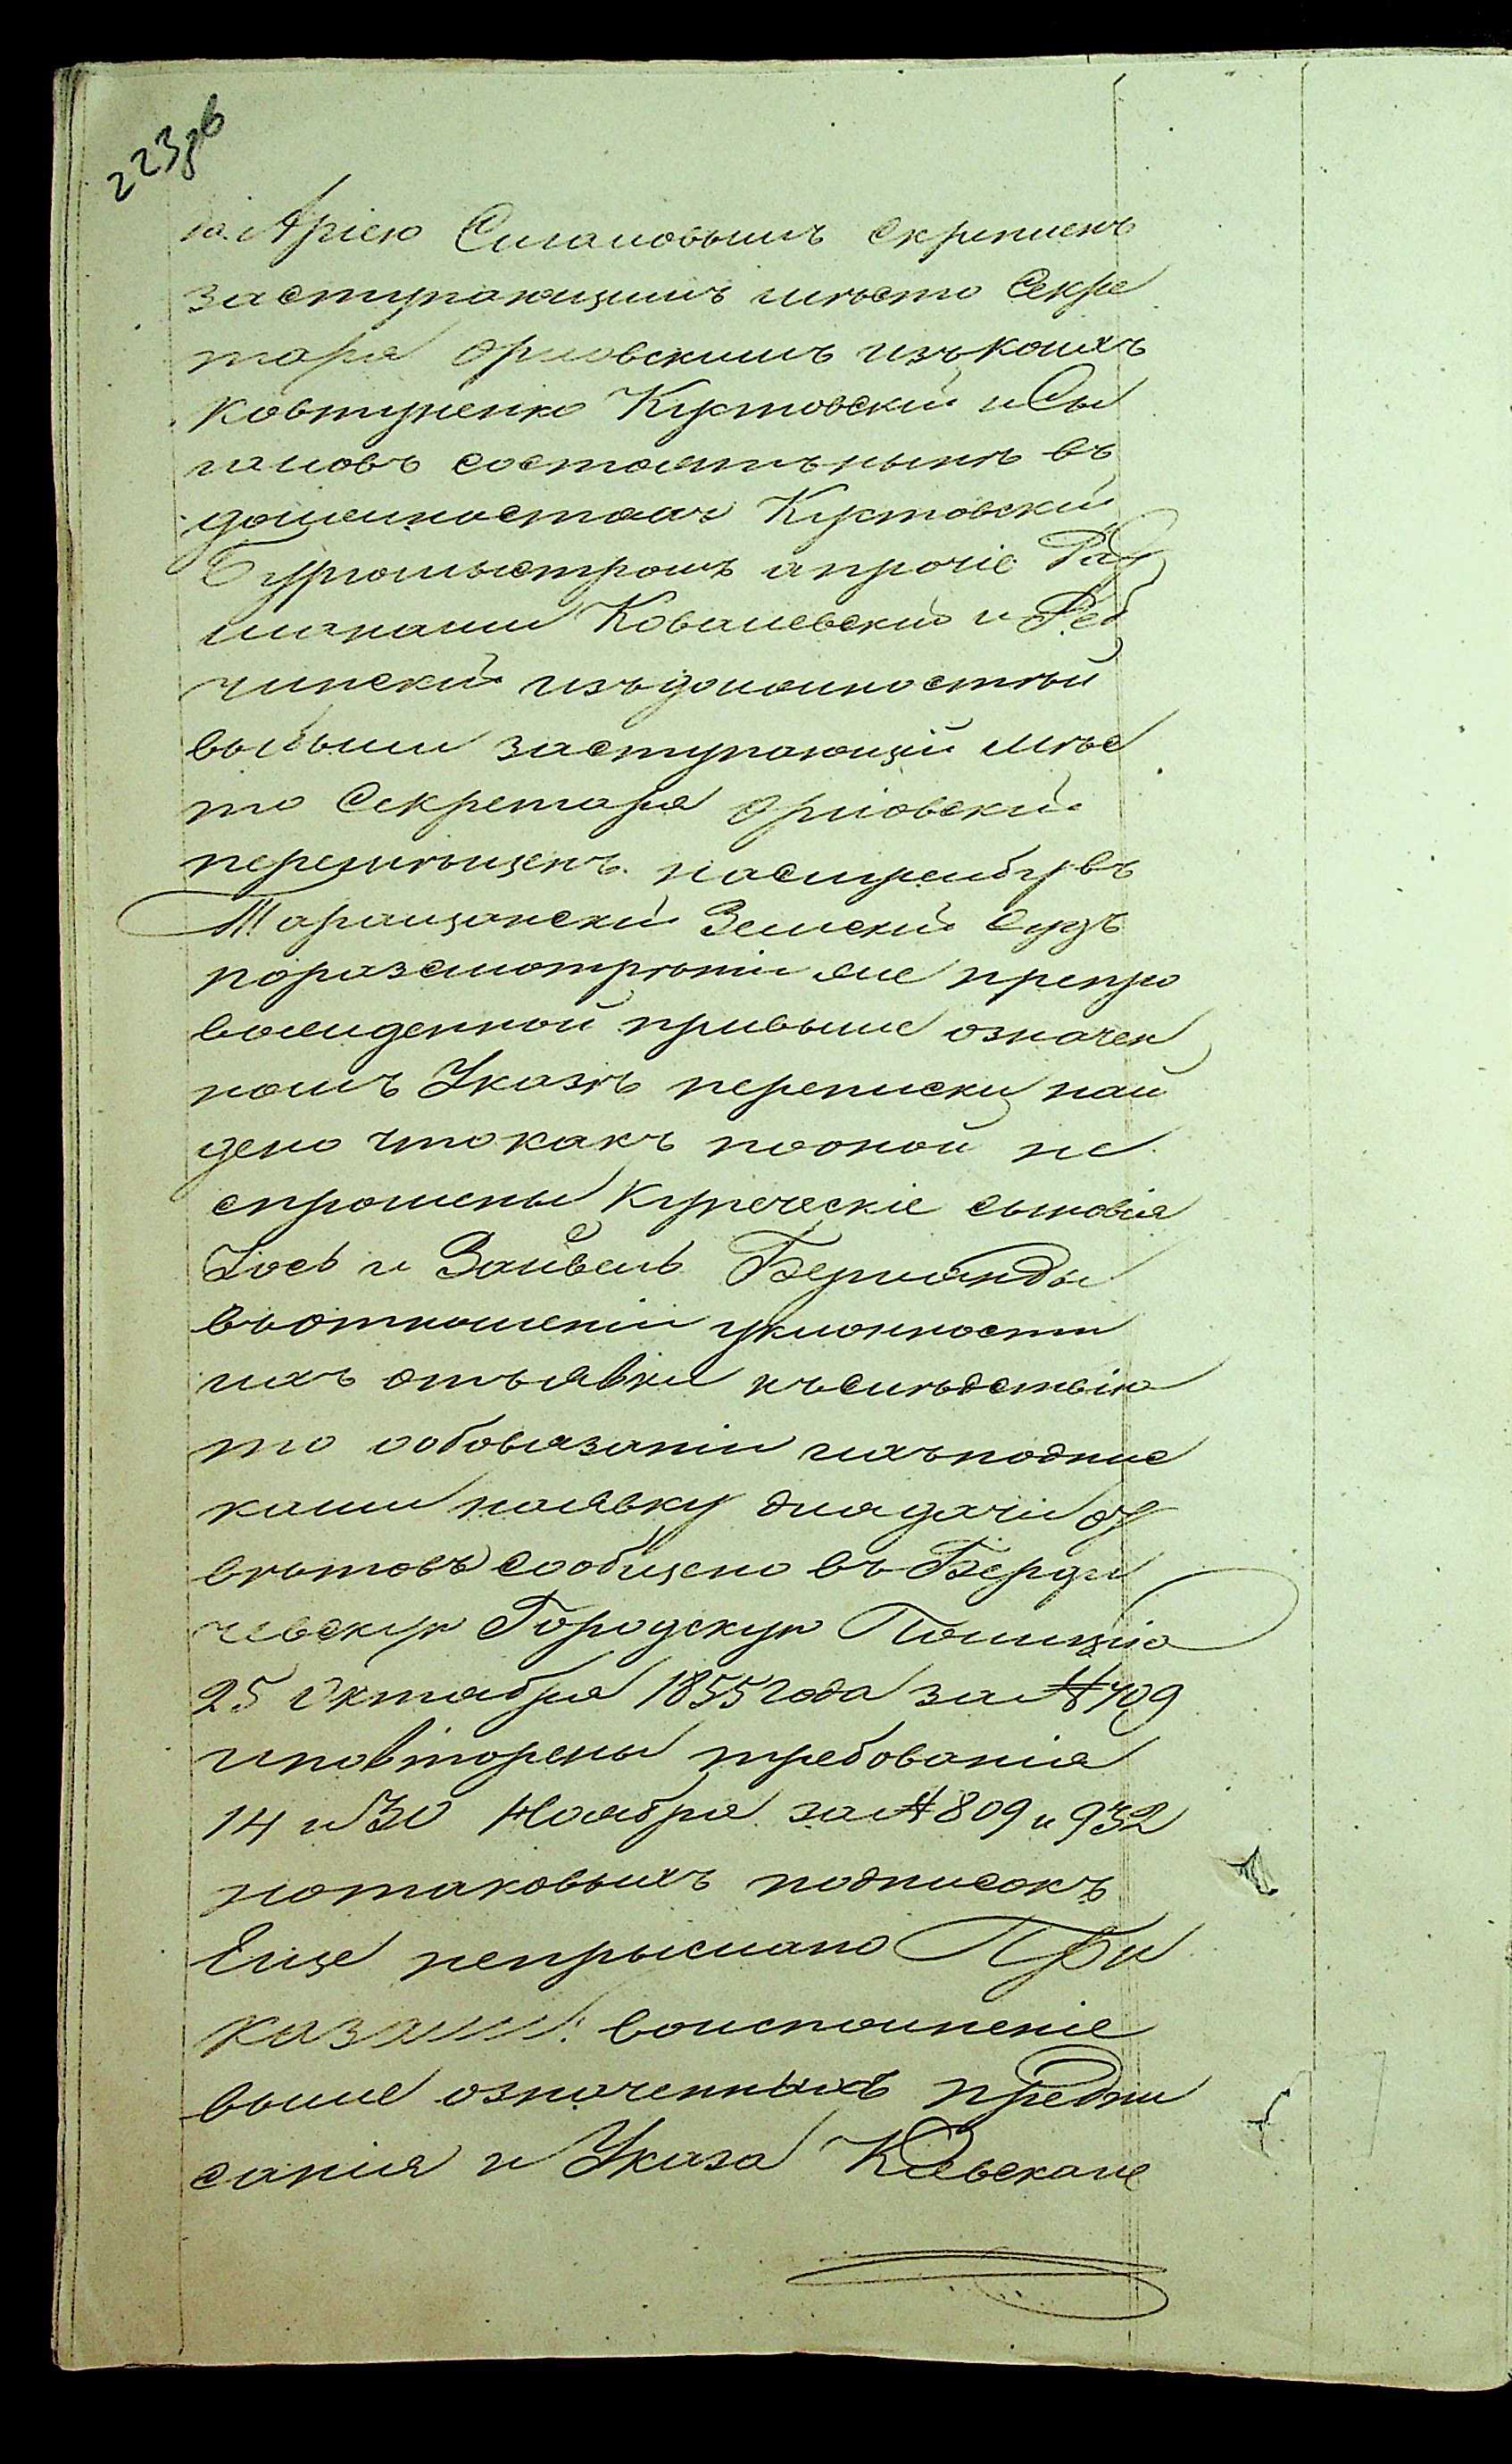 223об
Аріею Сигаловымъ скрѣпленъ
заступающимъ мѣсто Секре
таря Орловскимъ изъ коихъ
Ковтуненко Куктовскій и Сы
галовъ состоятъ нынѣ въ
должностяхъ Куктовскій
Бургомыстромъ а прочіе Рат
манами Ковалевскій и Реб
чинскій изъ должностей
выбыли заступающій мѣс
то Секретаря Орловскій
перемѣщенъ на службу въ
Таращанскій Земскій Судъ
по разсмотрѣніи же препро
вожденной при выше означен
номъ Указѣ переписки най
дено что какъ по оной не
спрошены купеческіе сыновья
Іось и Зайвель Берманды
въ отношеніи уклонности
ихъ отъ явки къ слѣдствію
то о обовязаніи ихъ подпис
ками на явку для дачи от
вѣтовъ сообщено въ Берди
чевскую Городскую Полицію
25 Октября 1855 года за № 709
и повторены требованія
14 и 30 Ноября за № 809 и 932
но таковыхъ подписокъ
Еще не прыслано При
казали: во исполненіе
выше означенныхъ предпи
санія и Указа Кіевскаго